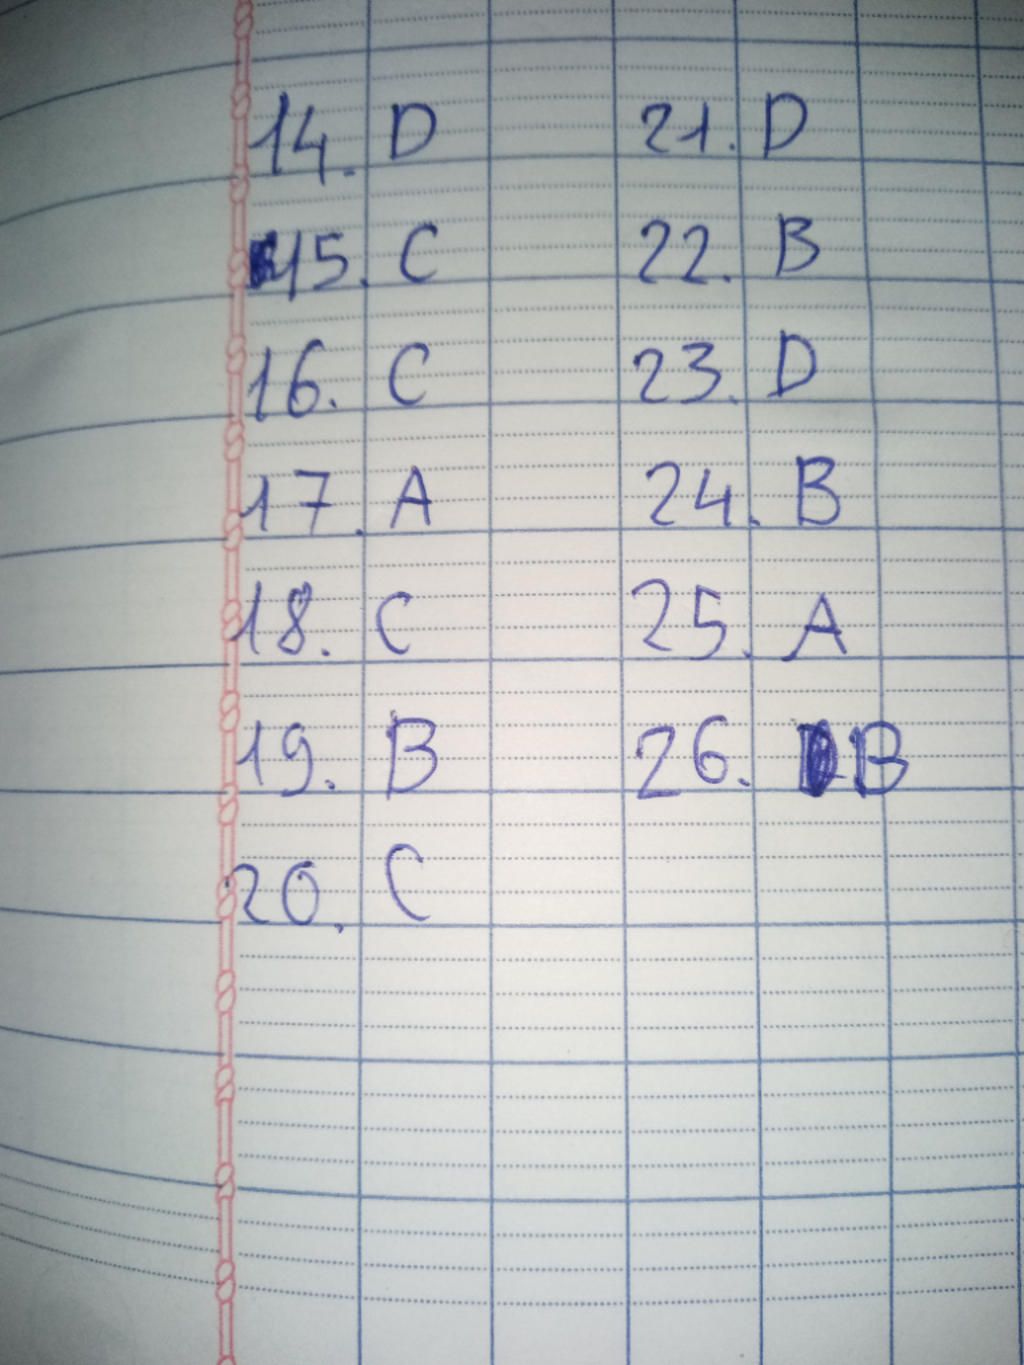 14. D
15. C
16. C
17. A
18. C
19. B
20. C
21. D
22. B
23. D
24. B
25. A
26. B